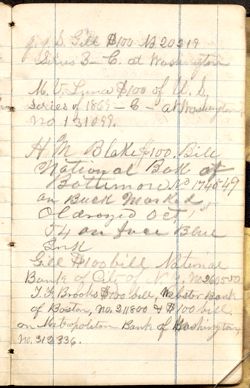 J. S. Gill $100 No 20219
Series 3 - C. at Washington
M. V. Luna $100 of U. S.
series of 1869 - C - at Washington
no 131099.
H M Blake $100. Bill
National Bank of
Baltimore No 174549
on Back Marked
Oct 1st
74 on face Blue
Ink
Gill $100 bill National
Bank of City of N.Y. No 260550
T. F. Brooks $100 bill, Webster Bank
of Boston, no. 211800 & $100 bill
on Metropolitan Bank of Washington
No. 312336.